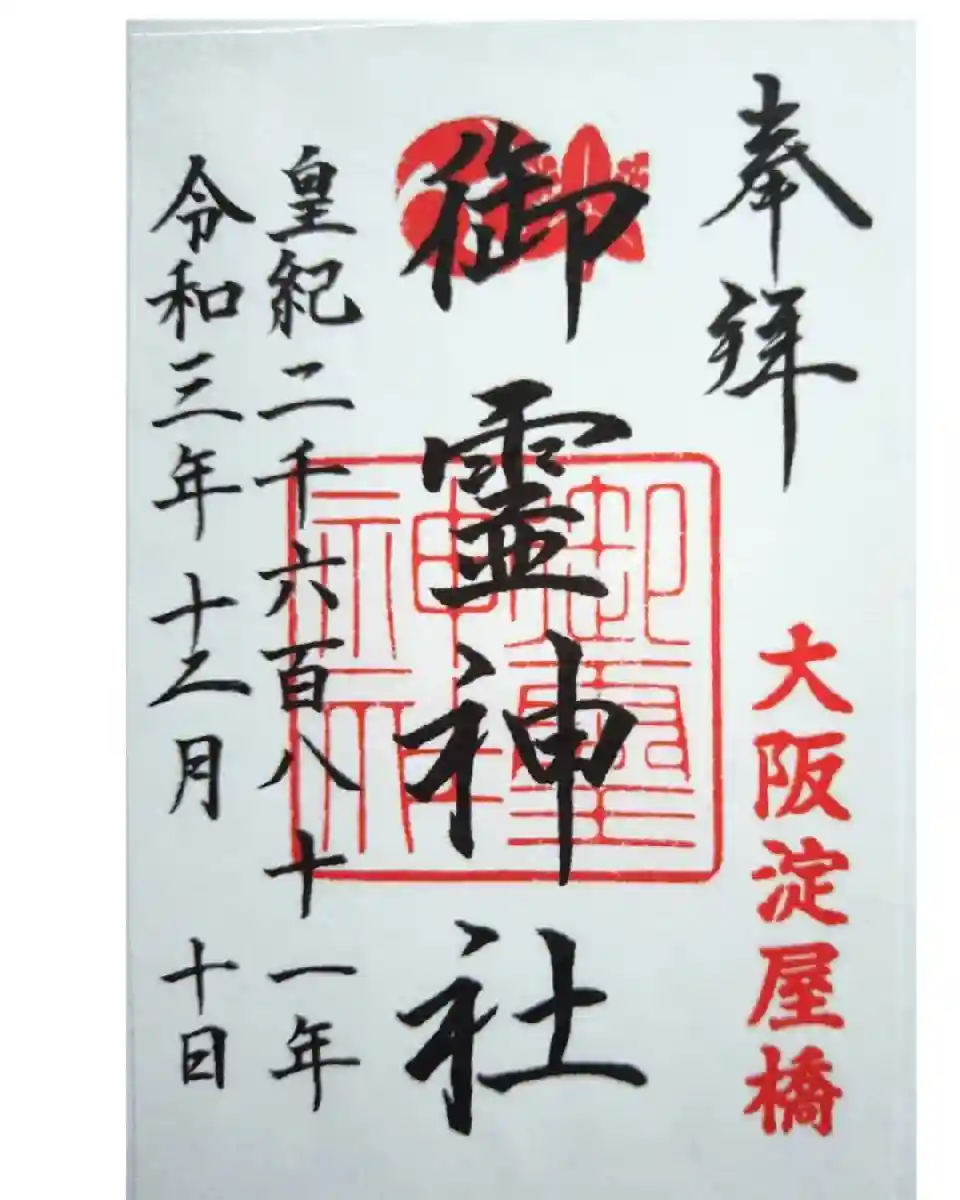 奉拝
大阪淀屋橋
御霊神社
御霊神社
皇紀二千六百八十一年
令和三年十二月十日